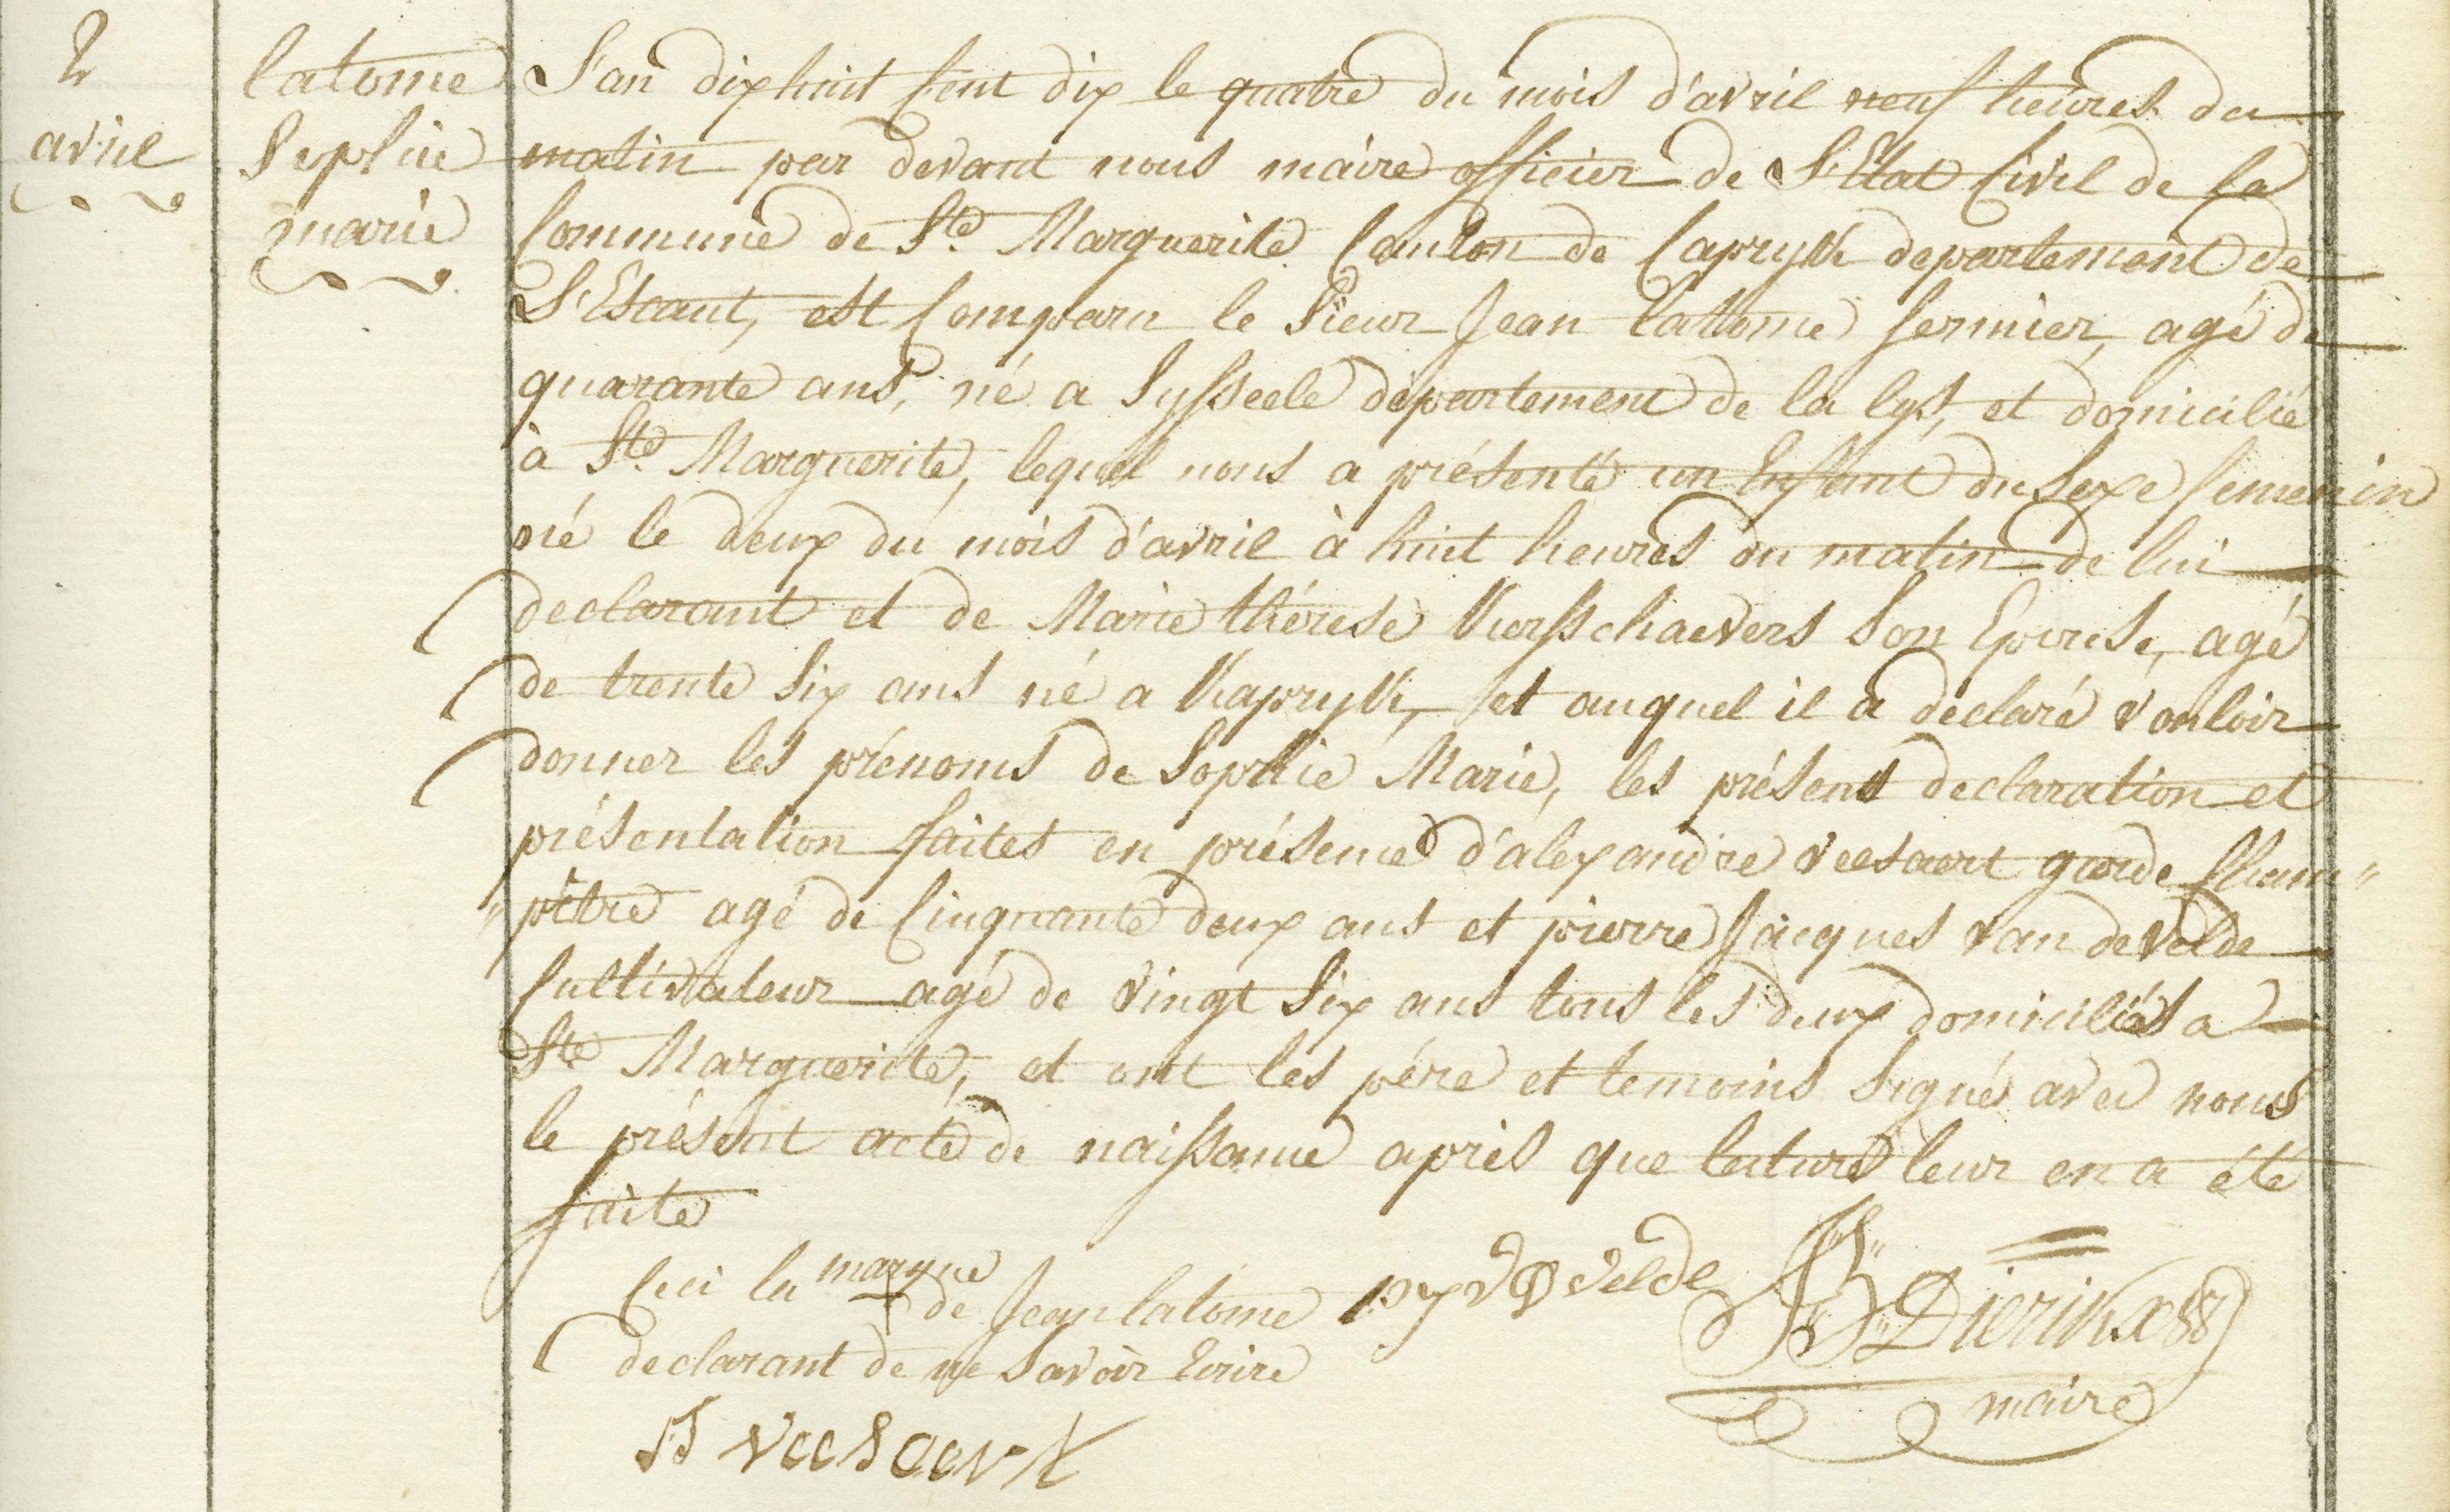 2
avril
latome
Sophie
marie
L'an dix huit Cent dix le quatre du mois d'avril neuf heures du
matin par devant nous maire officier de L'Etat Civil de la
Commune de Ste Marguerite Canton de Capryck departement de
L'Escaut, est Comparu le Sieur Jean latome fermier, agé de
quarante ans, né a Sysseele département de la lys, et domicilié
à Ste Marguerite, lequel nous a présenté un Enfant du Sexe femenin
né le deux du mois d'avril à huit heures du matin de lui
declarant et de Marie thérese Versschaevers Son Epouse, agé
de trente Six ans né a Kapryk, et auquel il a declaré vouloir
donner les prénoms de Sophie Marie, les présent declaration et
présentation faites en présence d'alexandre veesaert garde Cham"
"pêtre agé de Cinquante deux ans et pierre Jacques van de Velde
Cultivateur agé de vingt Six ans tous les deux domiciliés a
Ste Marguerite, et ont les pére et temoins Signé avec nous
le présent acte de naissance aprés que lecture leur en a été
faite
Ceci la marque + de Jean latome
declarant de ne Savoir Ecrire
p J V D Velde
Dierikx
maire
veesaert